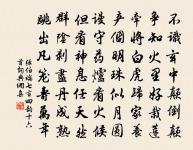 不識玄中顛倒顛
爭知火裏好栽蓮
牽將白虎歸家養
產個明珠似月圓
謾守藥爐看火候
但看神息任天然
群陰剝盡丹成熟
跳出凡籠壽萬年
張伯端七言四韻十六
首詞典網集